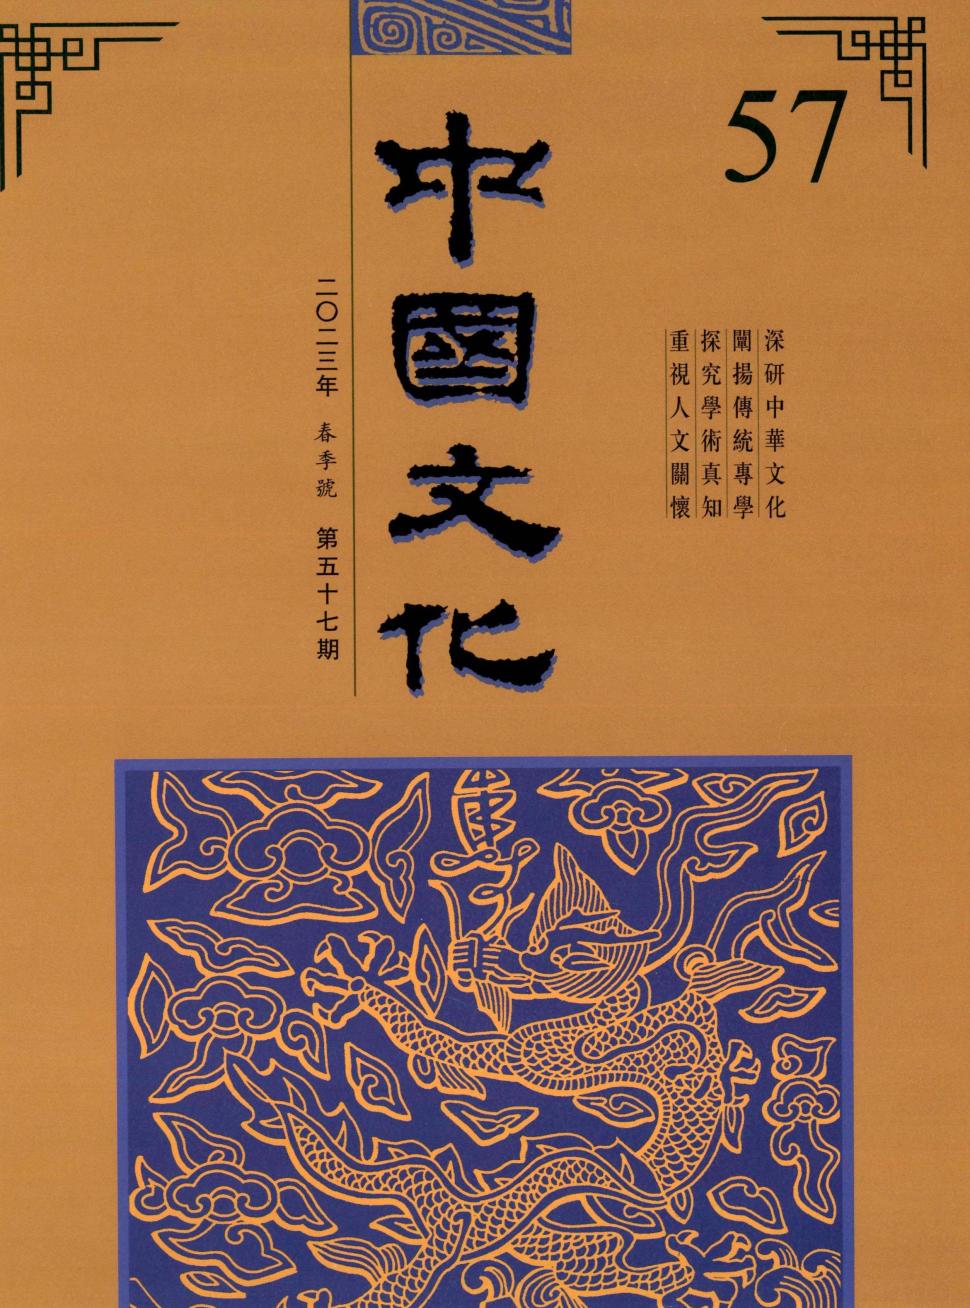 57
深研中華文化
闡揚傳統專學
探究學術真知
重視人文關懷
中國文化
二〇二三年 春季號 第五十七期